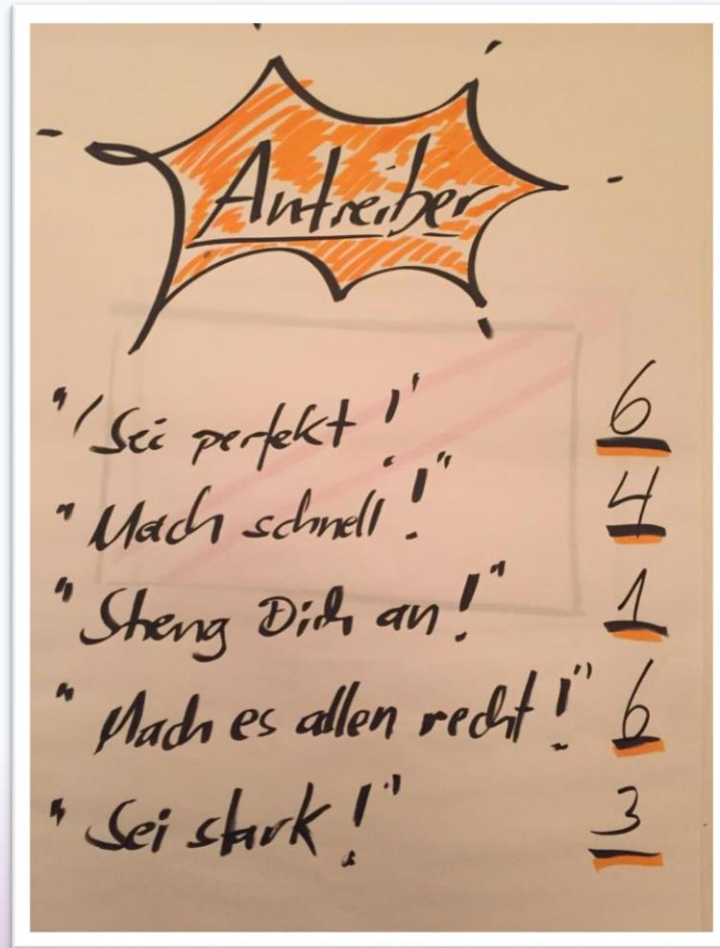 Antreiber
"Sei perfekt!" 6
"Mach schnell!" 4
"Streng Dich an!" 1
"Mach es allen recht!" 6
"Sei stark!" 3